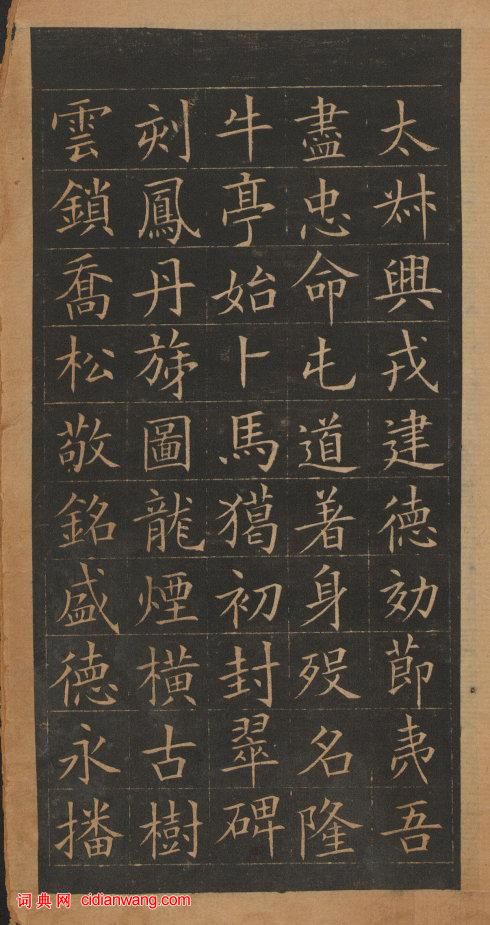 太叔興戎建德効節夷吾
盡忠命屯道着身殁名隆
牛亭始卜馬獦初封翠碑
刻鳳丹旐圖龍煙橫古樹
雲鎖喬松敬銘盛德永播
词典网 cidianwang.com